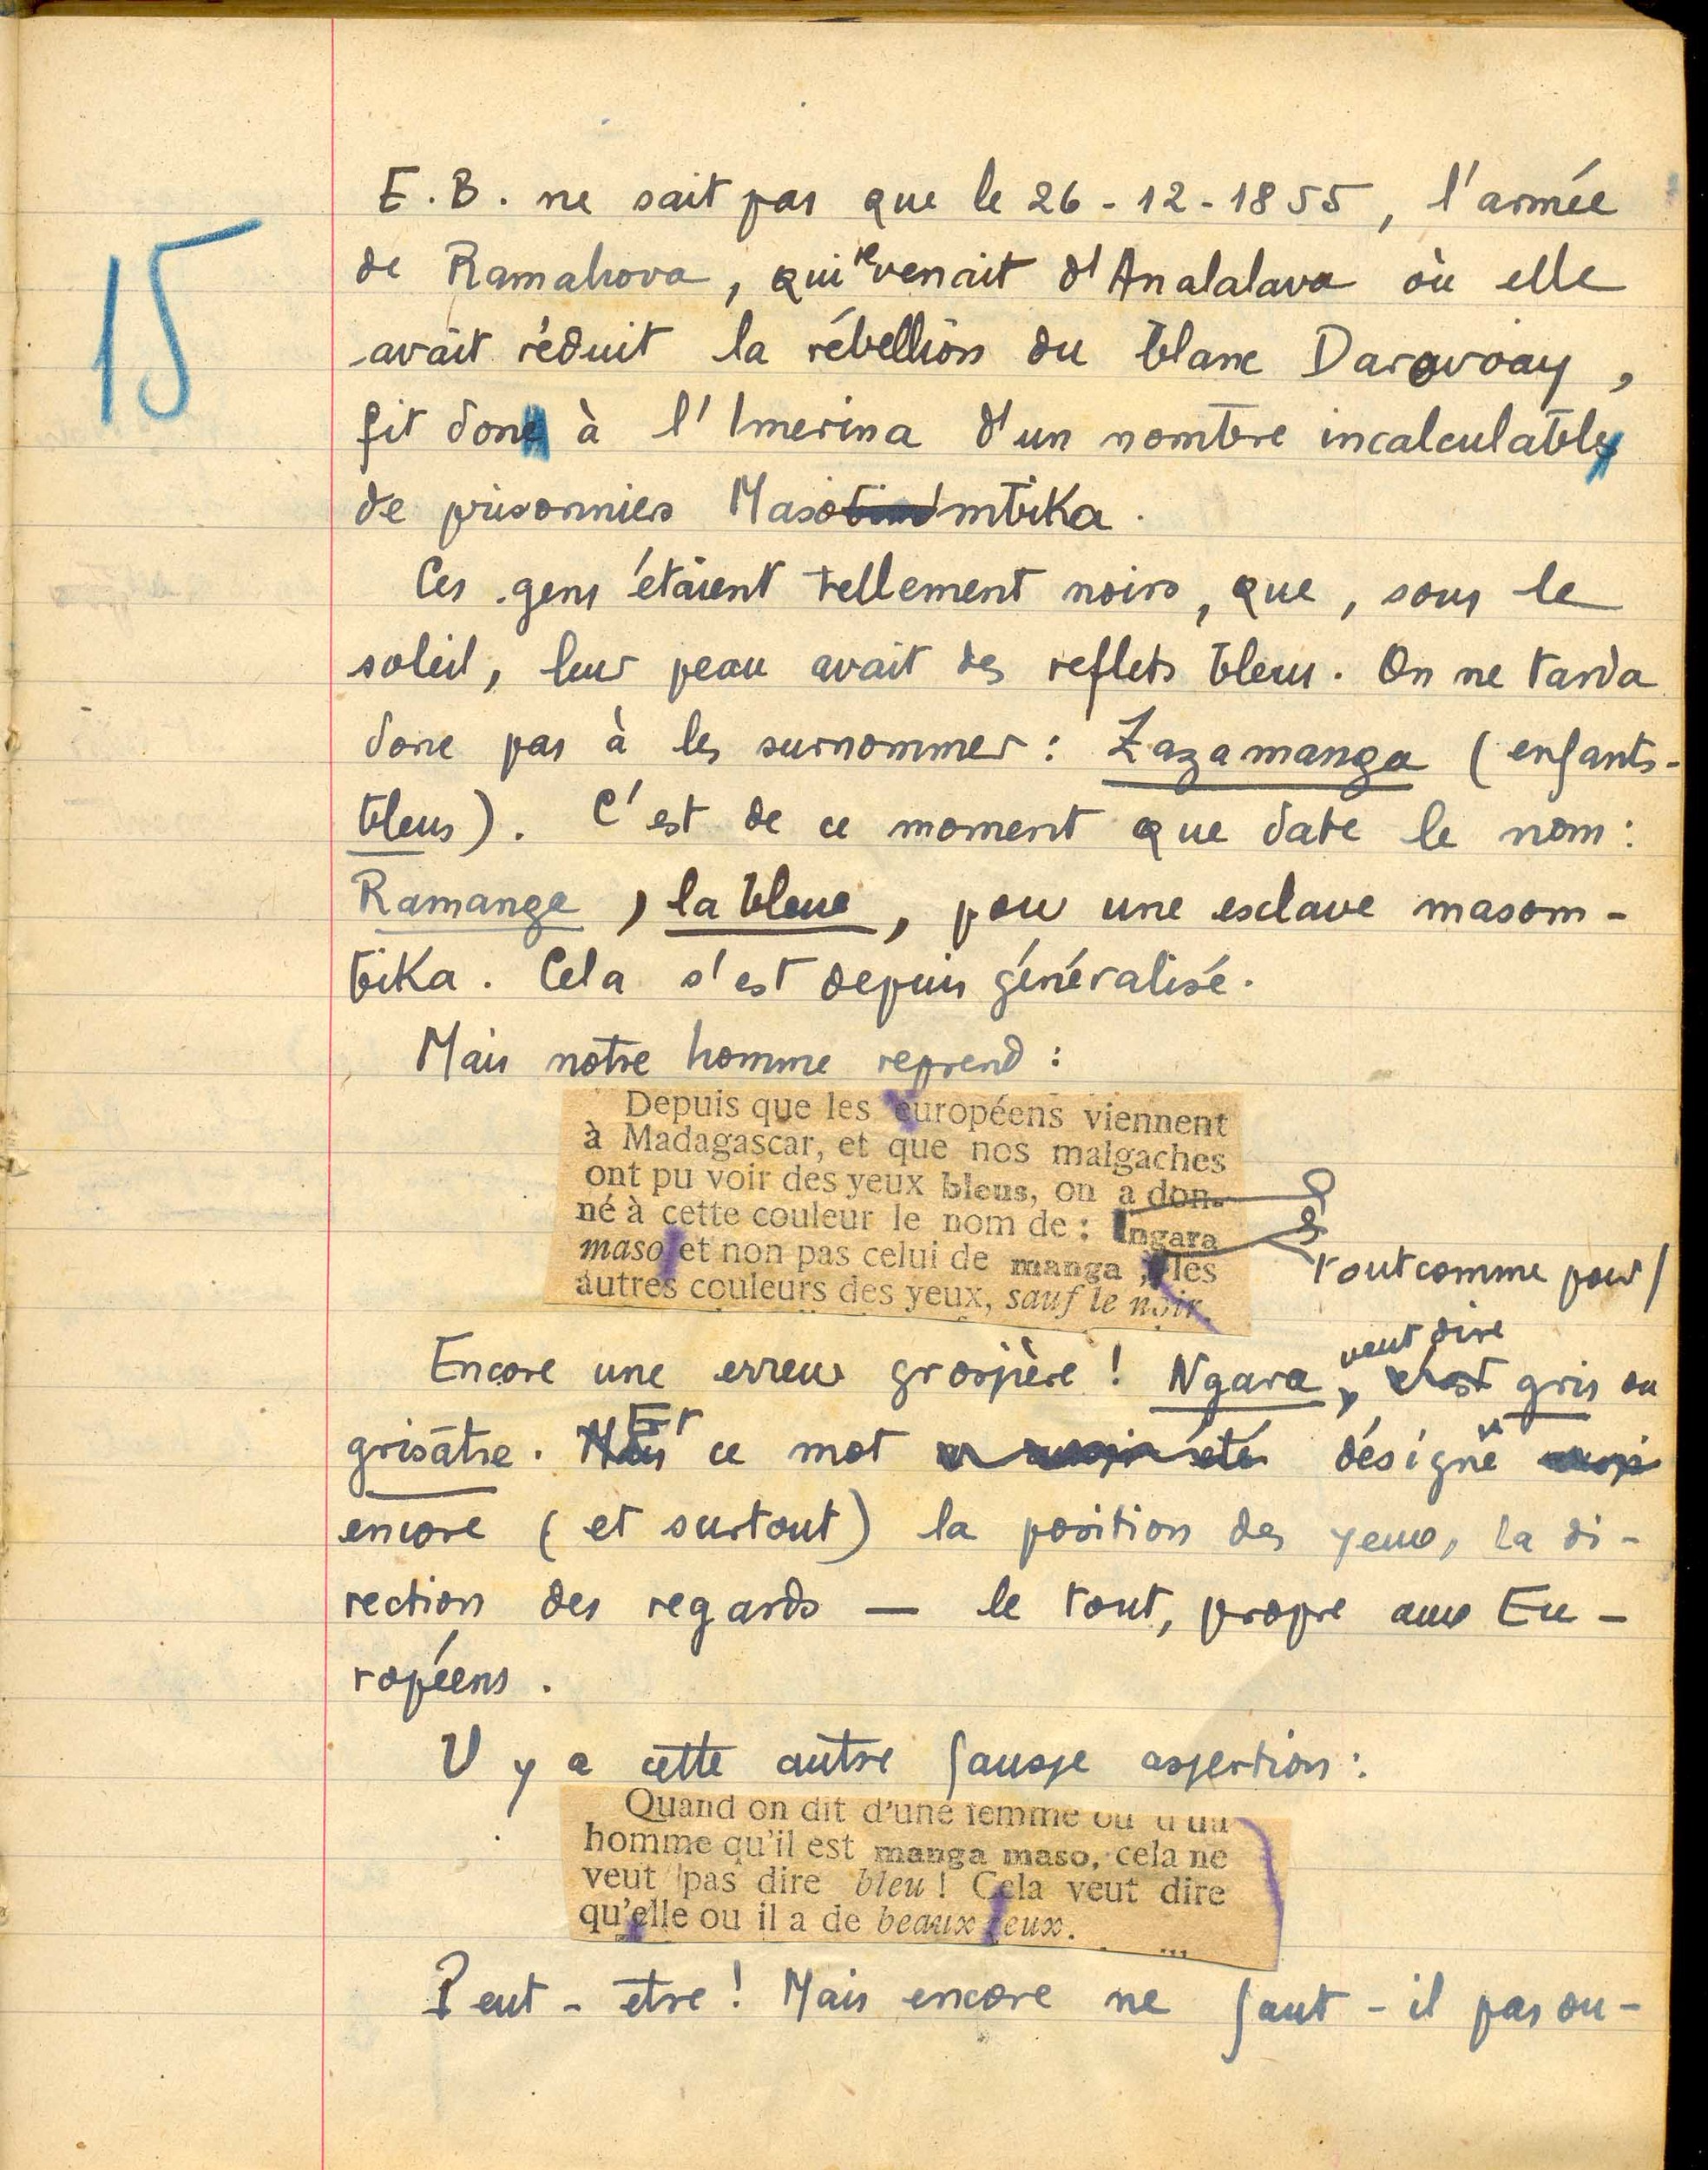 15
E. B. ne sait pas que le 26-12-1855, l'armée
de Ramahova, qui revenait d'Analalava où elle
avait réduit la rébellion du blanc Daravoay,
fit don à l'Imerina d'un nombre incalculable
de prisonniers Masombika.
Ces gens étaient tellement noirs, que, sous le
soleil, leur peau avait des reflets bleus. On ne tarda
donc pas à les surnommer : Zazamanga (enfants-
bleus). C'est de ce moment que date le nom :
Ramanga, la bleue, pour une esclave masom-
bika. Cela s'est depuis généralisé.
Mais notre homme reprend :
Depuis que les européens viennent
à Madagascar, et que nos malgaches
ont pu voir des yeux bleus, on a don-
né à cette couleur le nom de : Ingara
maso et non pas celui de manga, les
autres couleurs des yeux, sauf le noir.
tout comme pour
Encore une erreur grossière ! Ngara, veut dire gris ou
grisâtre. Et ce mot désigne
encore (et surtout) la position des yeux, la di-
rection des regards — le tout, propre aux Eu-
ropéens.
Il y a cette autre fausse assertion :
Quand on dit d'une femme ou d'un
homme qu'il est manga maso, cela ne
veut pas dire bleu ! Cela veut dire
qu'elle ou il a de beaux yeux.
Peut-être ! Mais encore ne faut-il pas ou-